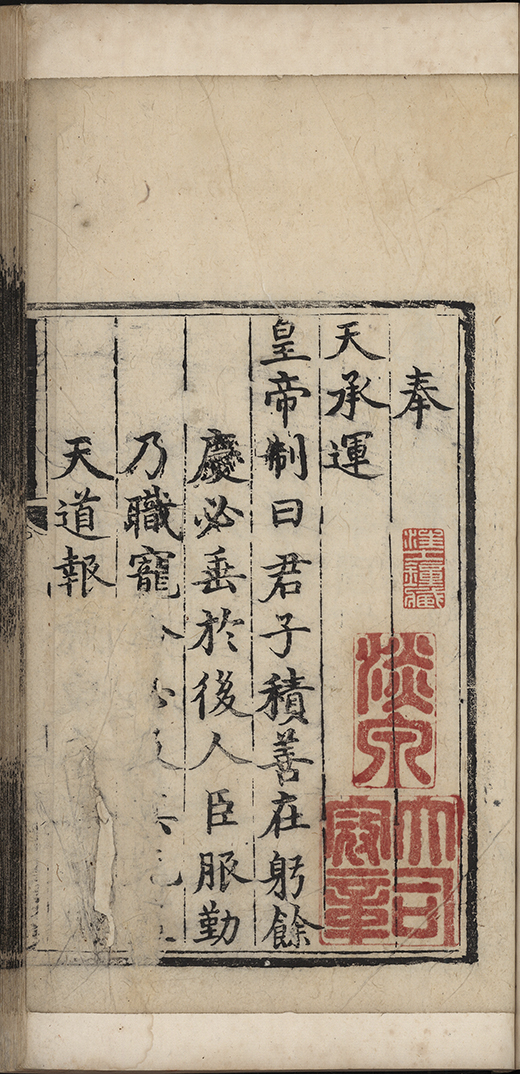 奉
天承運
皇帝制曰君子積善在躬餘
慶必垂於後人臣服勤
乃職寵
天道報
淡泉
大司寇章